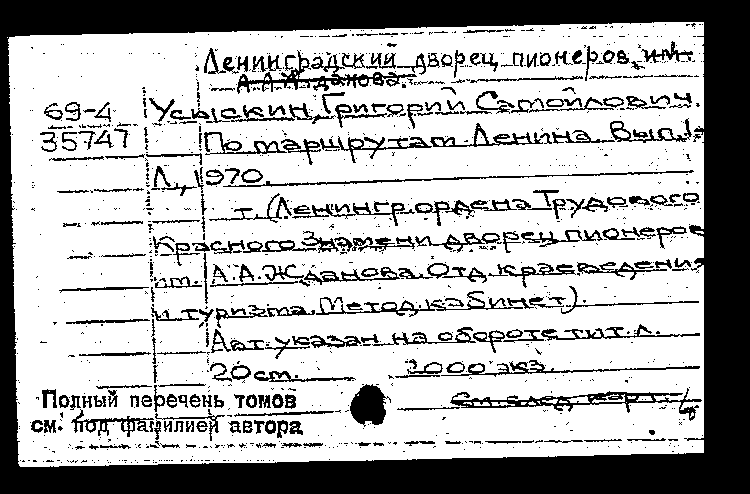 Ленинградский дворец пионеров им.
А.А.Жданова.
69-4 Усыскин, Григорий Самойлович.
35747 По маршрутам Ленина. Вып.1-
Л., 1970.
т. (Ленингр. ордена Трудового
Красного Знамени дворец пионеров
им. А.А.Жданова. Отд. краеведения
и туризма. Метод. кабинет).
Авт. указан на обороте тит. л.
20 см. 2000 экз.
Полный перечень томов см. след. карт.
см. под фамилией автора